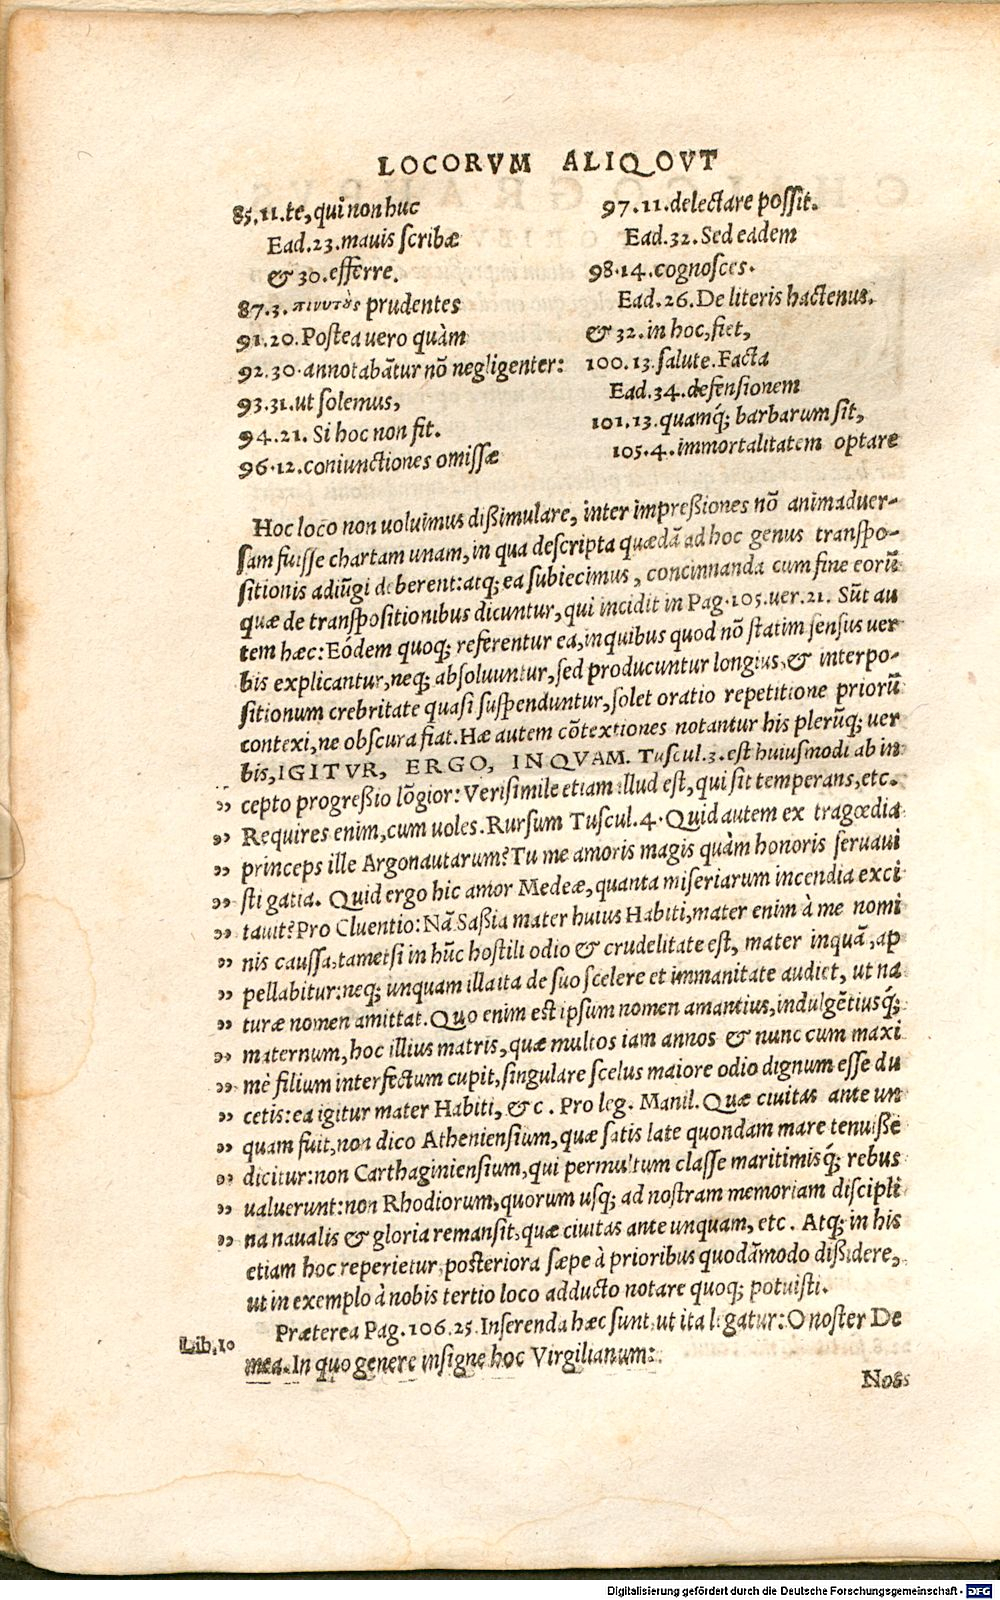 LOCORVM ALIQOVT
85.11.te, qui non huc
Ead.23.mauis scribæ
& 30.efferre.
87.3.πινυτὸς prudentes
91.20.Postea uero quàm
92.30.annotabātur nō negligenter:
93.31.ut solemus,
94.21. Si hoc non fit.
96.12.coniunctiones omissæ
97.11.delectare possit.
Ead.32. Sed eadem
98.14.cognosces.
Ead.26. De literis hactenus.
& 32.in hoc, fiet,
100.13.salute.Facta
Ead.34.defensionem
101.13.quamq́; barbarum sit,
105.4.immortalitatem optare
Hoc loco non uoluimus dißimulare, inter impreßiones nō animaduer-
sam fuisse chartam unam, in qua descripta quædā ad hoc genus transpo-
sitionis adiūgi deberent: atq; ea subiecimus, concinnanda cum fine eorū
quæ de transpositionibus dicuntur, qui incidit in Pag.105.uer.21. Sūt au
tem hæc: Eódem quoq; referentur ea, in quibus quod nō statim sensus uer
bis explicantur, neq; absoluuntur, sed producuntur longius, & interpo-
sitionum crebritate quasi suspenduntur, solet oratio repetitione priorū
contexi, ne obscura fiat. Hæ autem cōtextiones notantur his plerūq; uer
bis, IGITVR, ERGO, INQVAM. Tuscul.3.est huiusmodi ab in
„ cepto progreßio lōgior: Verisimile etiam illud est, qui sit temperans, etc.
„ Requires enim, cum uoles. Rursum Tuscul.4. Quid autem ex tragœdia
„ princeps ille Argonautarum? Tu me amoris magis quàm honoris seruaui
„ sti gatia. Quid ergo hic amor Medeæ, quanta miseriarum incendia exci
„ tauit? Pro Cluentio: Nā Saßia mater huius Habiti, mater enim à me nomi
„ nis caussa, tametsi in hūc hostili odio & crudelitate est, mater inquā, ap
„ pellabitur: neq; unquam illa ita de suo scelere et immanitate audiet, ut na
„ turæ nomen amittat. Quo enim est ipsum nomen amantius, indulgētiusq́;
„ maternum, hoc illius matris, quæ multos iam annos & nunc cum maxi
„ mè filium interfectum cupit, singulare scelus maiore odio dignum esse du
„ cetis: ea igitur mater Habiti, &c. Pro leg. Manil. Quæ ciuitas ante un
„ quam fuit, non dico Atheniensium, quæ satis late quondam mare tenuiße
„ dicitur: non Carthaginiensium, qui permultum classe maritimisq́; rebus
„ ualuerunt: non Rhodiorum, quorum usq; ad nostram memoriam discipli
„ na naualis & gloria remansit, quæ ciuitas ante unquam, etc. Atq; in his
etiam hoc reperietur, posteriora sæpe à prioribus quodāmodo dißidere,
ut in exemplo à nobis tertio loco adducto notare quoq; potuisti.
Præterea Pag.106.25. Inserenda hæc sunt, ut ita legatur: O noster De
Lib.10
mea. In quo genere insigne hoc Virgilianum:
Digitalisierung gefördert durch die Deutsche Forschungsgemeinschaft - DFG